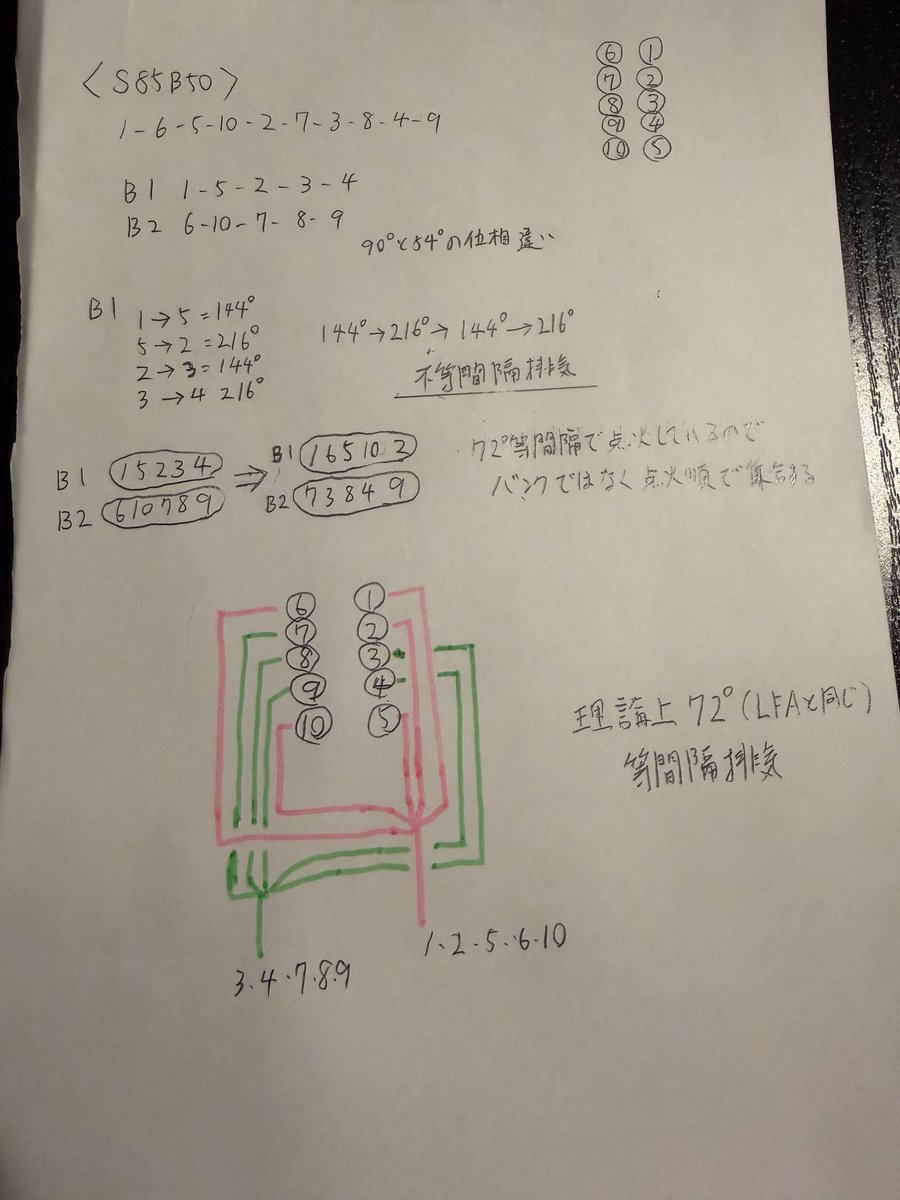 <S85B50>
1-6-5-10-2-7-3-8-4-9
⑥ ①
⑦ ②
⑧ ③
⑨ ④
⑩ ⑤
B1 1-5-2-3-4
B2 6-10-7-8-9
90°と54°の位相違い
B1 1→5=144°
5→2=216°
2→3=144°
3→4 216°
144°→216°→144°→216°
不等間隔排気
B1 15234 ⇒ B1 165102
B2 610789 B2 73849
72°等間隔で点火しているので
バンクではなく点火順で集合する
⑥ ①
⑦ ②
⑧ ③
⑨ ④
⑩ ⑤
理論上72°(LFAと同じ)
等間隔排気
1.2.5.6.10
3.4.7.8.9